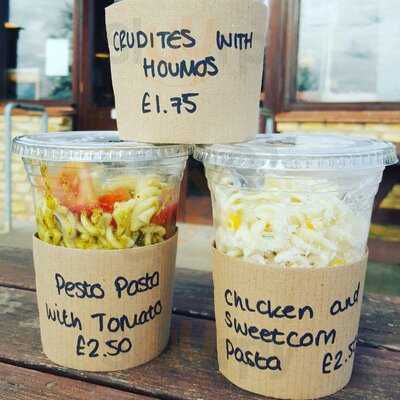 CRUDITES WITH
HOUMOS
£1.75
Pesto Pasta
with Tomato
£2.50
chicken and
sweetcorn
pasta £2.5